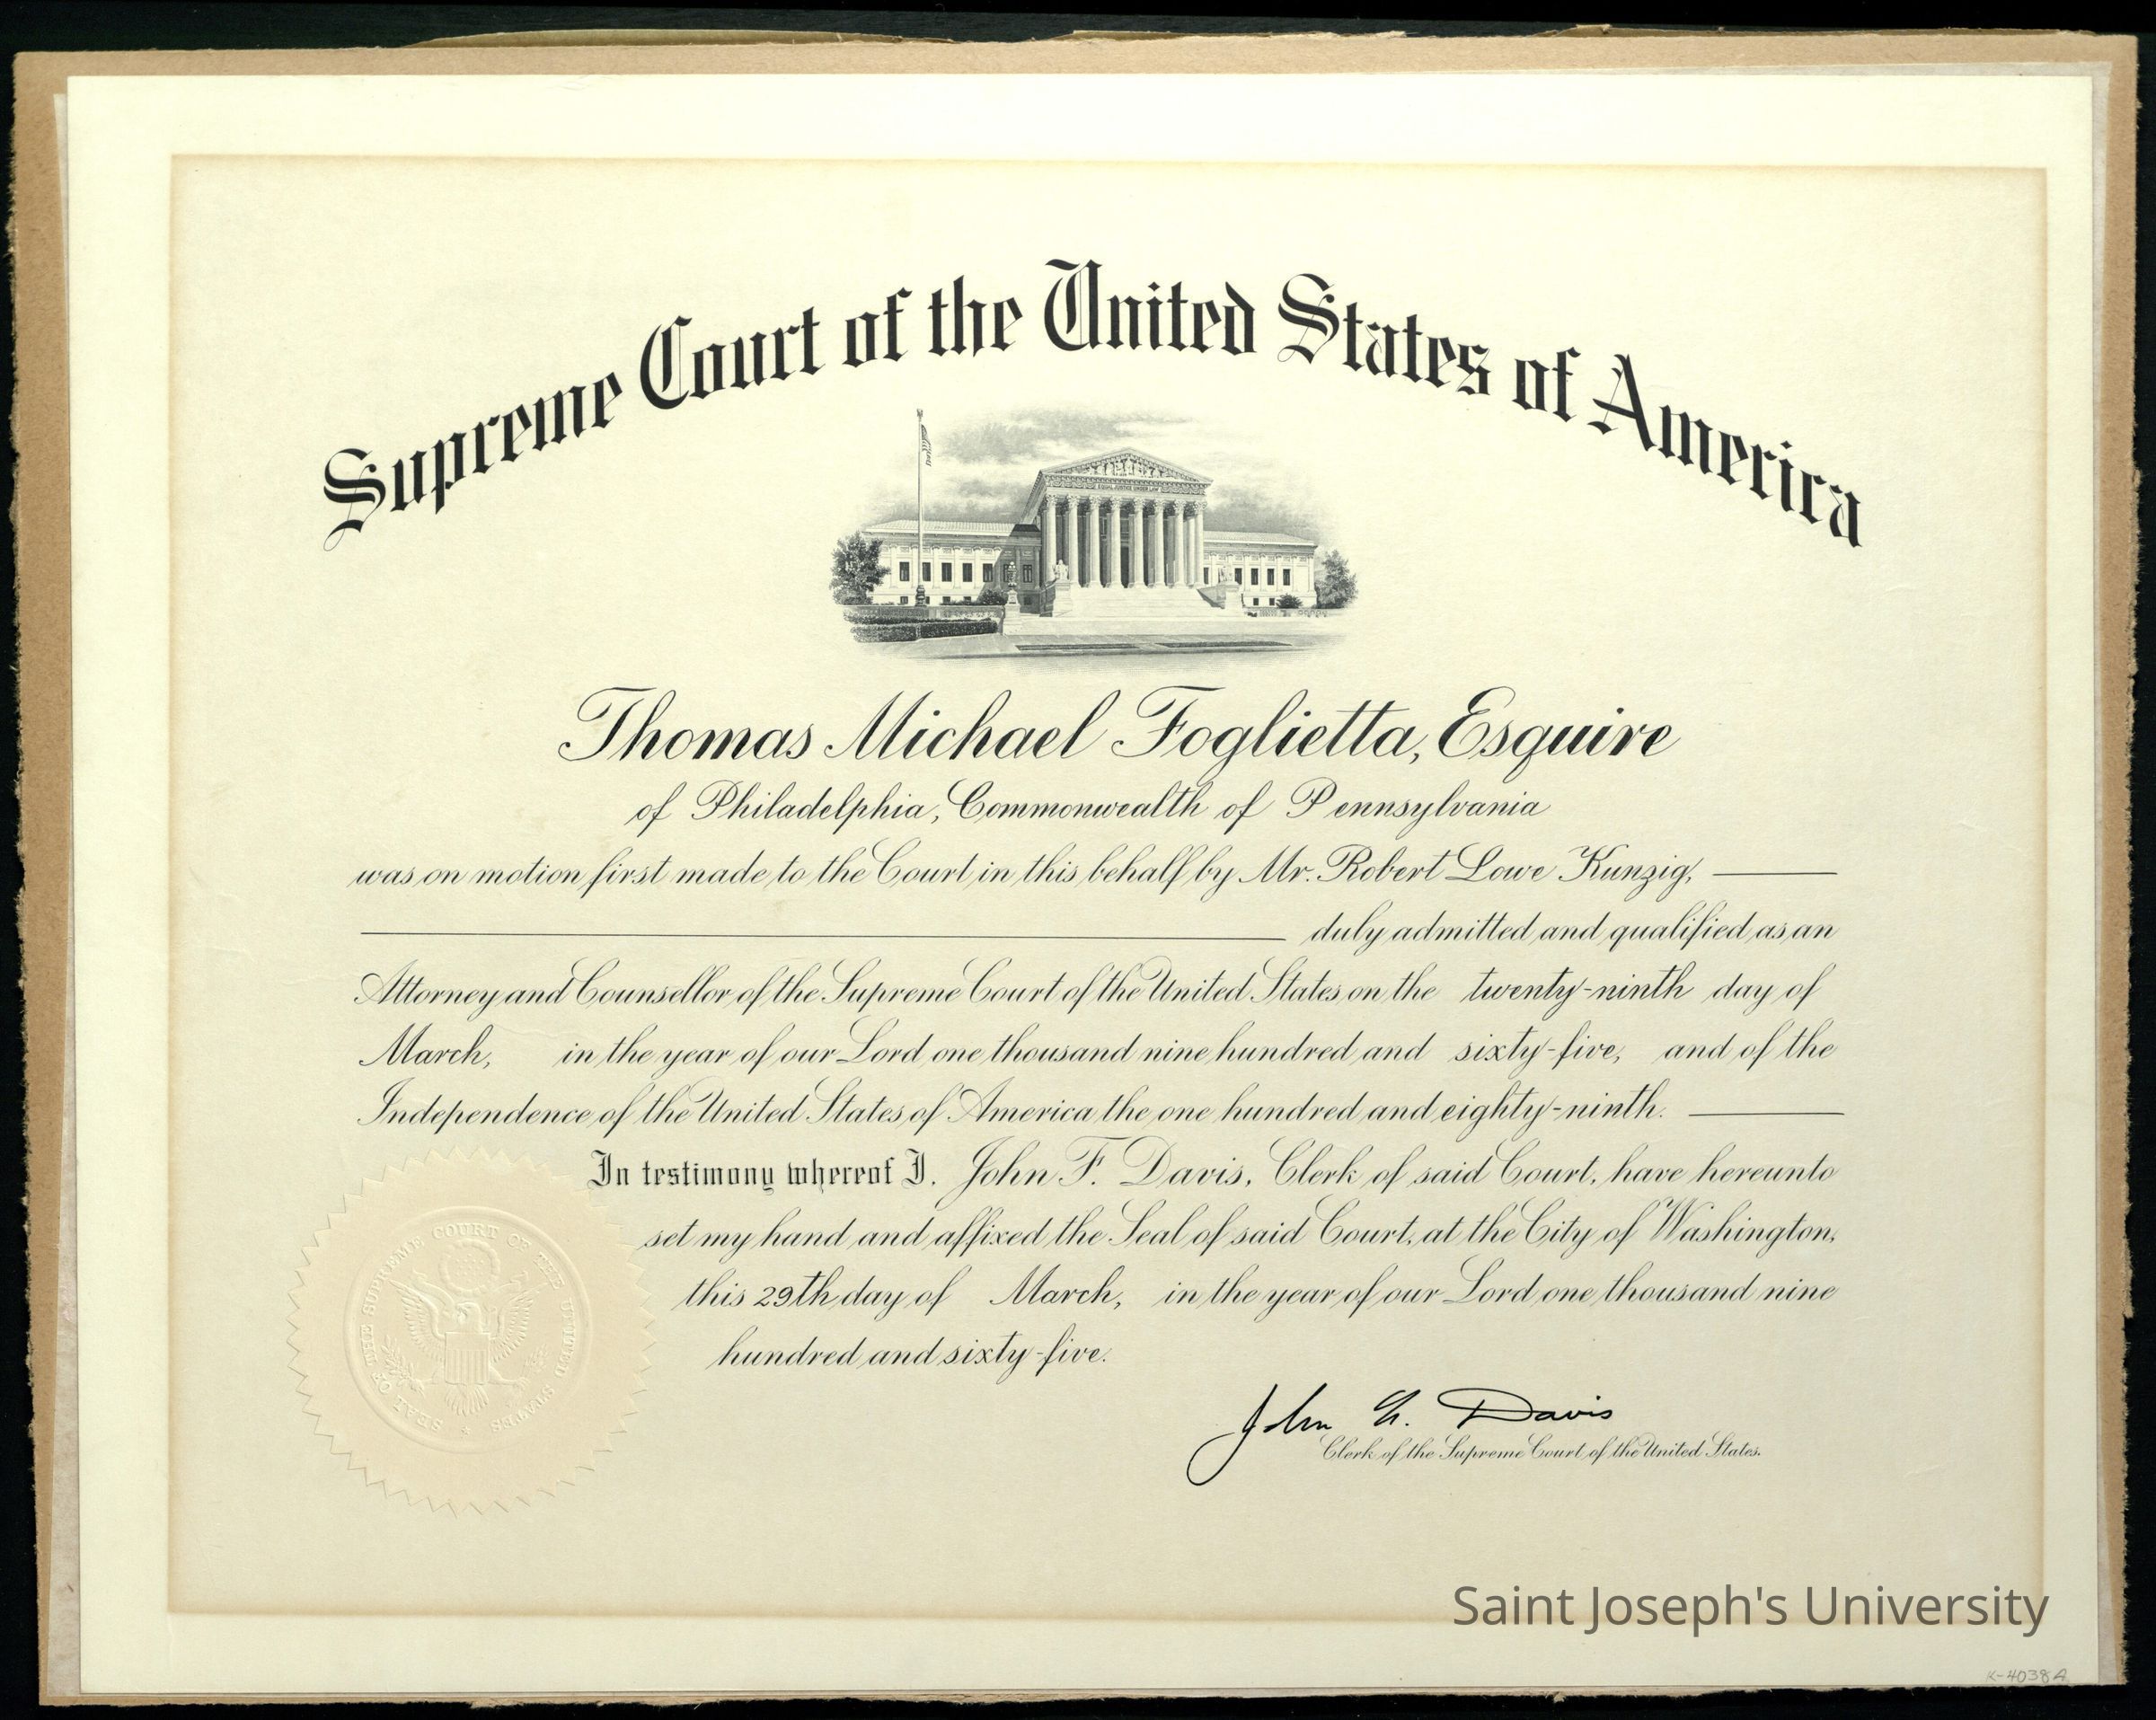 Supreme Court of the United States of America
EQUAL JUSTICE UNDER LAW
Thomas Michael Foglietta, Esquire
of Philadelphia, Commonwealth of Pennsylvania
was on motion first made to the Court in this behalf by Mr. Robert Lowe Kunzig,
duly admitted and qualified as an
Attorney and Counsellor of the Supreme Court of the United States on the twenty-ninth day of
March, in the year of our Lord one thousand nine hundred and sixty-five, and of the
Independence of the United States of America the one hundred and eighty-ninth.
In testimony whereof I, John F. Davis, Clerk of said Court, have hereunto
set my hand and affixed the Seal of said Court, at the City of Washington,
this 29th day of March, in the year of our Lord one thousand nine
hundred and sixty-five.
SEAL OF THE SUPREME COURT OF THE UNITED STATES
John F. Davis
Clerk of the Supreme Court of the United States.
Saint Joseph's University
K-4038A